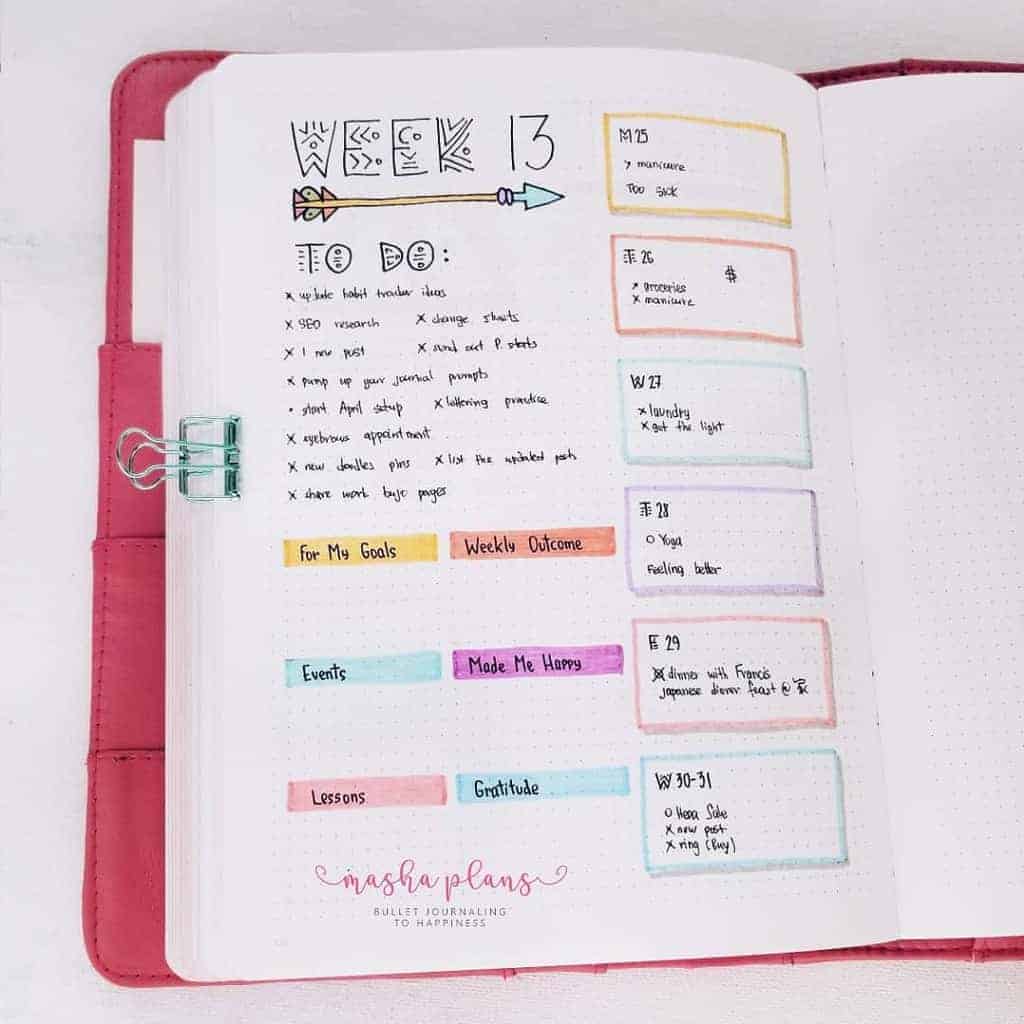 WEEK 13
TO DO:
x update habit tracker ideas
x SEO research x change sheets
x 1 new post x send out P. starts
x pump up your journal prompts
• start April setup x lettering practice
x eyebrows appointment
x new doodles pins x list the updated posts
x share work bujo pages
For My Goals Weekly Outcome
Events Made Me Happy
Lessons Gratitude
M 25
> manicure
Too sick
T 26
$
x groceries
x manicure
W 27
x laundry
x got the light
T 28
o Yoga
Feeling better
F 29
x dinner with Francis
japanese dinner feast @
W 30-31
o Hema Sale
x new post
x ring (Buy)
masha plans
BULLET JOURNALING
TO HAPPINESS